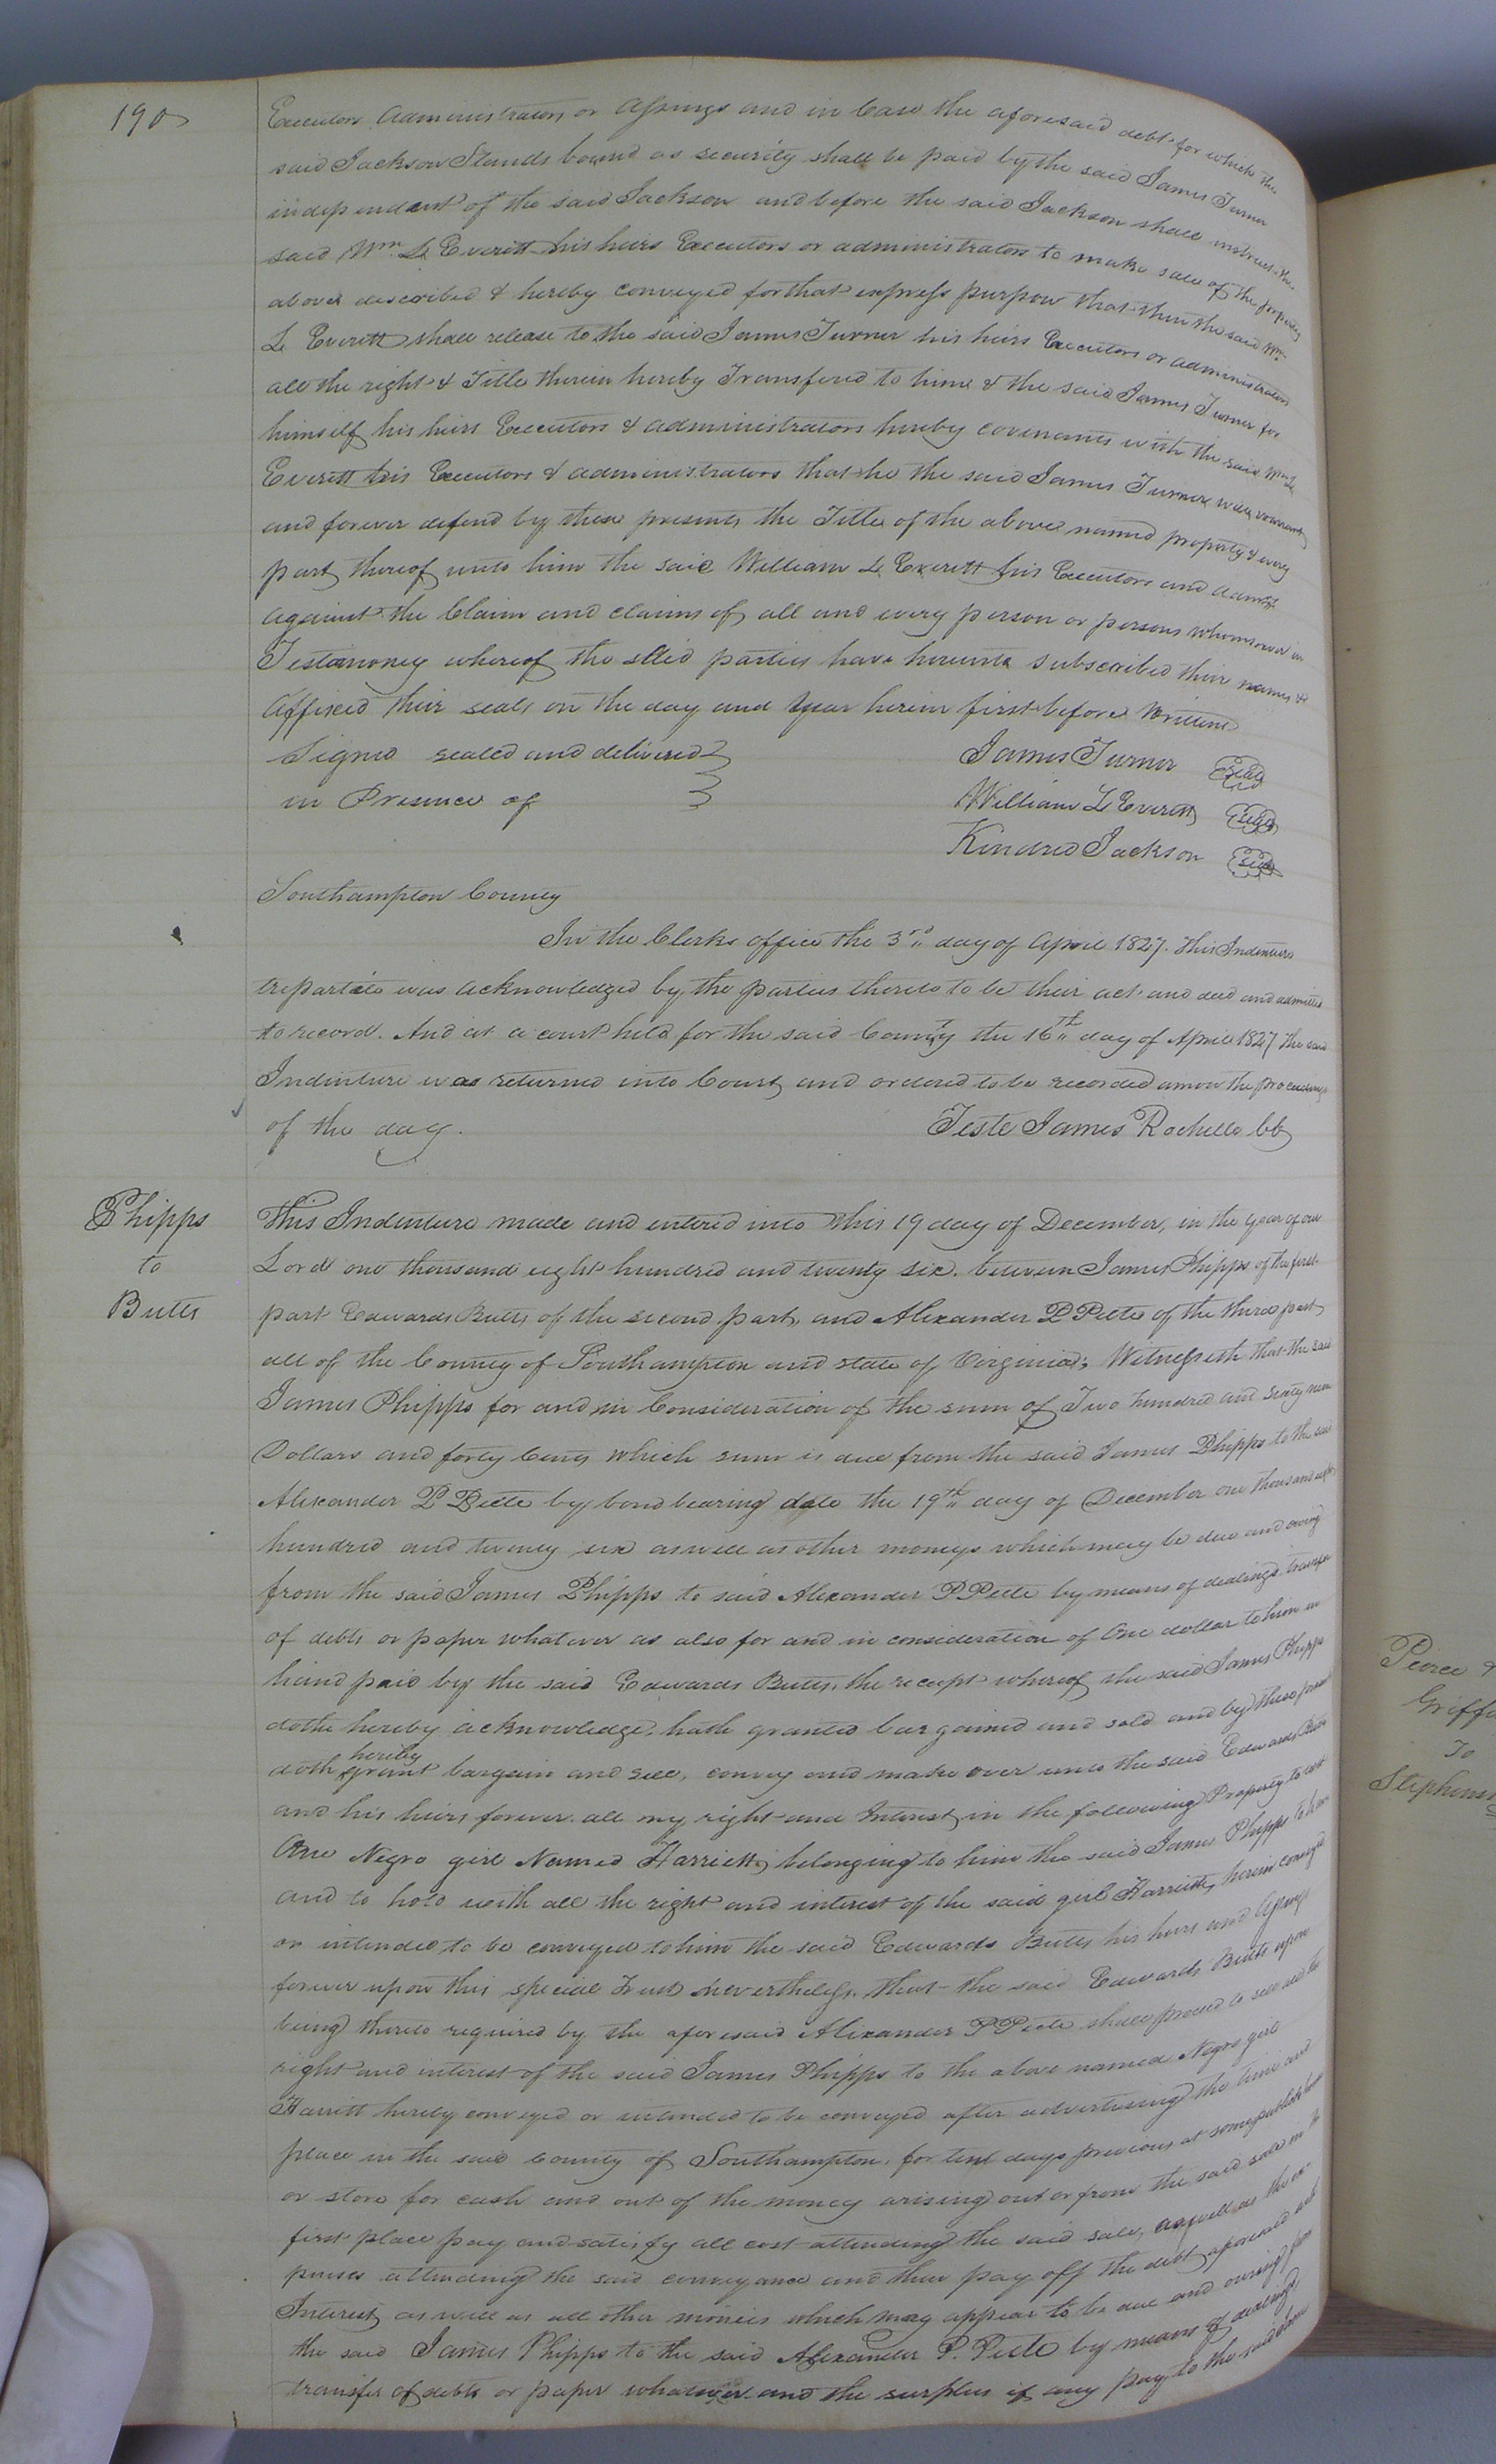 190
Executors Administrators or Assings and in Case the aforesaid debt for which the
said Jackson Stands bound as security shall be paid by the said James Turner
independent of the said Jackson and before the said Jackson shall instruct the
said Wm. L Everitt his heirs Executors or administrators to make sale of the property
above described & hereby conveyed for that express purpose that then the said Wm
L Everitt shall release to the said James Turner his heirs Executors or administrators
all the right & Title therein hereby Transfered to him & the said James Turner for
himself his heirs Executors & administrators hereby covenants with the said Wm L
Everitt his Executors & administrators that he the said James Turner will warrant
and forever defend by these presents the Title of the above named property & every
part thereof unto him the said William L Everitt his Executors and admrs
against the Claim and claims of all and every person or persons whomsoever in
Testimoney whereof the said parties have hereunto subscribed their names &
affixed their seals on the day and year herein first before Written
Signed sealed and delivered James Turner seal
in Presence of William L Everitt seal
Kindred Jackson seal
Southampton County
In the Clerks office the 3rd day of April 1827. This Indenture
trepartate was acknowledged by the parties thereto to be their act and deed and admitted
to record. And at a court held for the said County the 16th day of April 1827 the said
Indenture was returned into Court and ordered to be recorded among the proceedings
of the day. Teste James Rochelle CC
Phipps
to
Butts
This Indenture made and entered into this 19 day of December, in the year of our
Lord one thousand eight hundred and twenty six. between James Phipps of the first
part Edwards Butts of the second part, and Alexander P Peete of the third part
all of the County of Southampton and state of Virginia; Witnesseth that the said
James Phipps for and in Consideration of the sum of Two hundred and Sixty nine
Dollars and forty Cents which sum is due from the said James Phipps to the said
Alexander P Peete by bond bearing date the 19th day of December one thousand eight
hundred and twenty six as well as other moneys which may be due and owing
from the said James Phipps to said Alexander P Peete by means of dealings transfer
of debts or paper whatever as also for and in consideration of One dollar to him in
hand paid by the said Edwards Butts, the receipt whereof the said James Phipps
dothe hereby acknowledge, hath granted bargained and sold and by these presents
doth hereby grant bargain and sell, convey and make over unto the said Edwards Butts
and his heirs forever all my right and Interest in the following Property to wit
One Negro girl Named Harriett, belonging to him the said James Phipps to have
and to hold with all the right and interest of the said girl Harriett, herein conveyed
or intended to be conveyed to him the said Edwards Butts his heirs and assings
forever upon this special Trust nevertheless, that the said Edwards Butts upon
being thereto required by the aforesaid Alexander P Peete shall proceed to sell all the
right and interest of the said James Phipps to the above named Negro girl
Harritt hereby conveyed or intended to be conveyed after advertising the time and
place in the said County of Southampton, for ten days previous at some publick house
or store for cash and out of the money arising out or from the said sale in the
first place pay and satisfy all cost attending the said sale, as well as the ex-
penses attending the said conveyance and then pay off the debt aforesaid with
Interest as well as all other monies which may appear to be due and owing from
the said James Phipps to the said Alexander P. Peete by means of dealings
transfer of debts or paper whatever and the surplus if any pay to the said James
Peirce &
Griff
To
Stephens